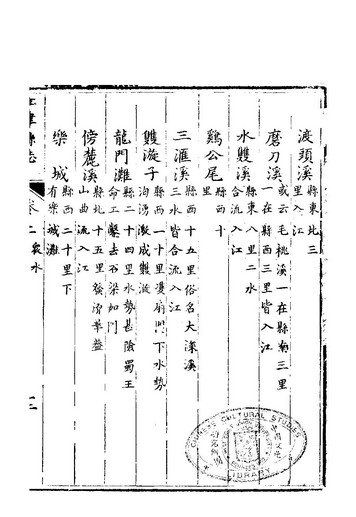 渡頭溪縣東北三里入江
磨刀溪或云毛桃溪一在縣南三里一在縣西三里皆入江
水雙溪縣東八里二水合流入江
鷄公尾縣西十里
三滙溪縣西十五里俗名大溪三水皆合流入江
雙漩子縣西一十里漫門下水勢洶湧激成雙漩
龍門灘縣二十四里水勢甚險蜀王命工鑿去石梁如門
傍麓溪縣北十五里發源華盖山曲流入江
樂城縣西二十里下有樂城灘
卷二 水
CHINESE CULTURAL STUDIES
LIBRARY